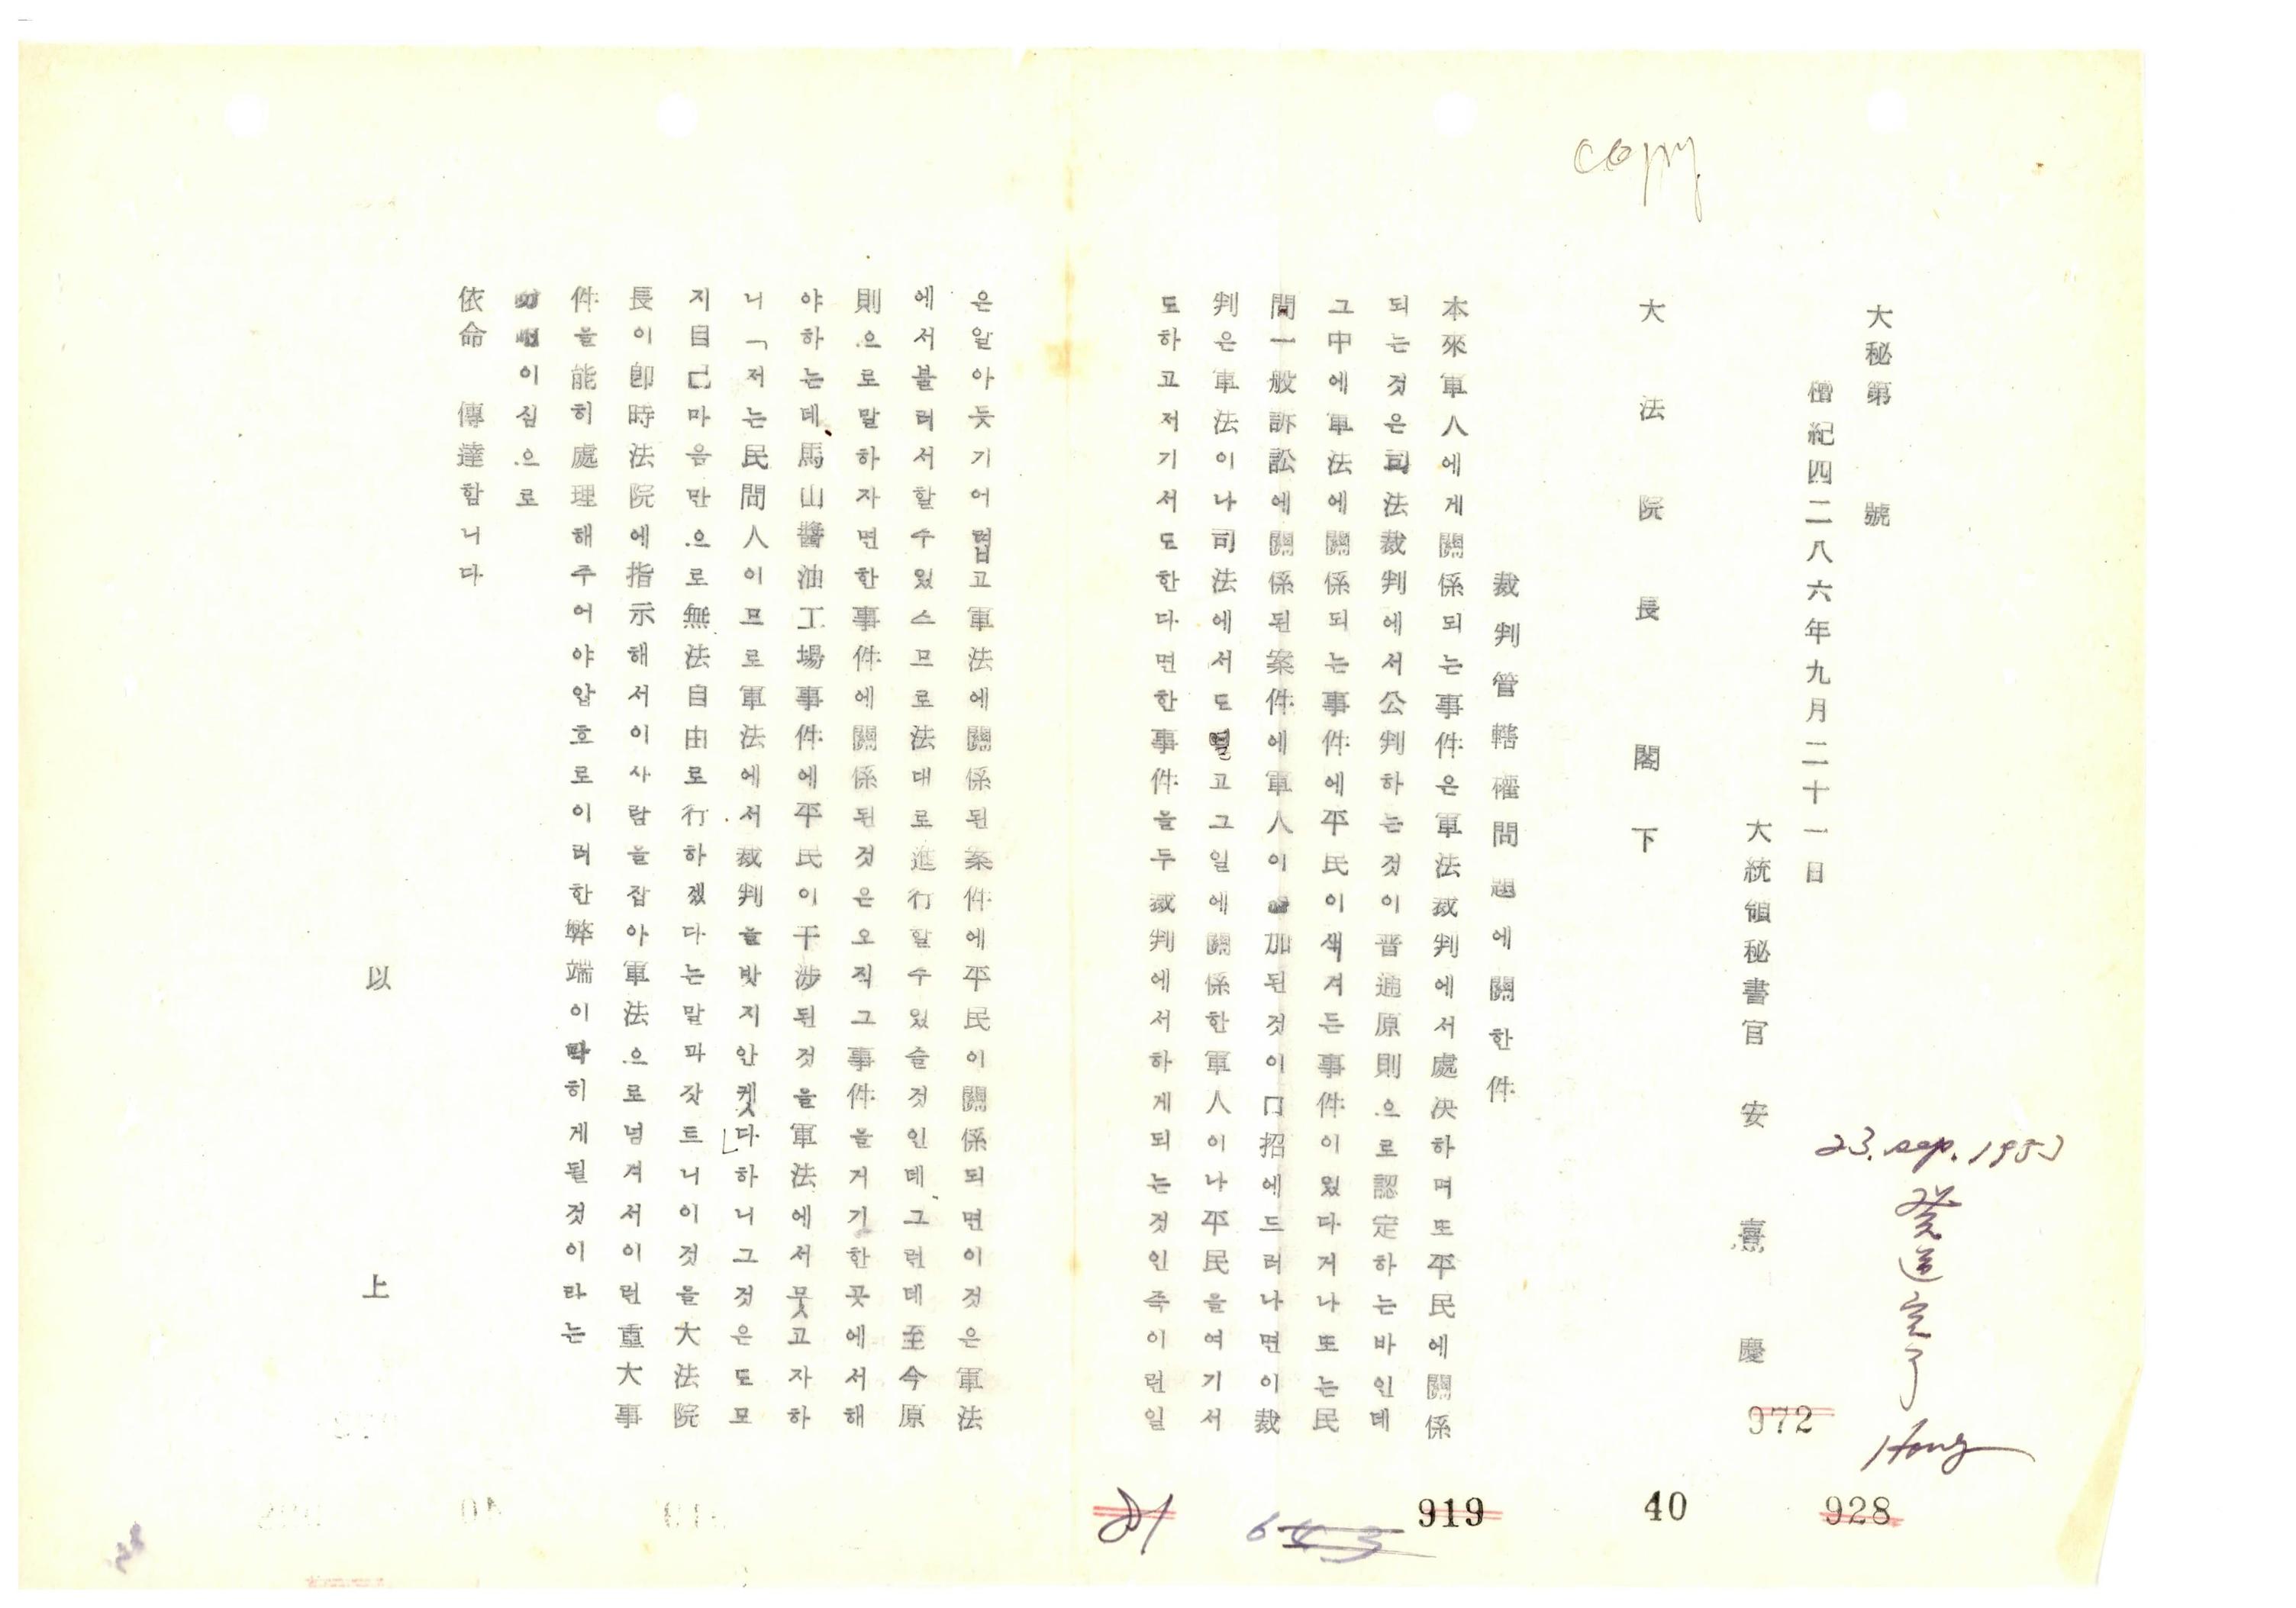 copy
大秘第 號
檀紀四二八六年九月二十一日
大統領秘書官 安熹慶
大法院長 閣下
裁判管轄權問題에關한件
本來軍人에게關係되는事件은軍法裁判에서處決하며또平民에關係
되는것은司法裁判에서公判하는것이普通原則으로認定하는바인데
그中에軍法에關係되는事件에平民이색겨든事件이있다거나또는民
間一般訴訟에關係된案件에軍人이 加된것이口招에드러나면이裁
判은軍法이나司法에서도열고그일에關係한軍人이나平民을여기서
도하고저기서도한다면한事件을두裁判에서하게되는것인즉이런일
은알아듯기어렵고軍法에關係된案件에平民이關係되면이것은軍法
에서불러서할수있스므로法대로進行할수있슬것인데그런데至今原
則으로말하자면한事件에關係된것은오직그事件을거기한곳에서해
야하는데馬山醬油工場事件에平民이干涉된것을軍法에서뭇고자하
니「저는民間人이므로軍法에서裁判을밧지안켓다」하니그것은도모
지自己마음만으로無法自由로行하겠다는말과갓트니이것을大法院
長이卽時法院에指示해서이사람을잡아軍法으로넘겨서이런重大事
件을能히處理해주어야압흐로이러한弊端이 히게될것이라는
이심으로
依命 傳達함니다
以 上
23. sep. 1953
發送完了
Hong
972
928
40
919
643
81